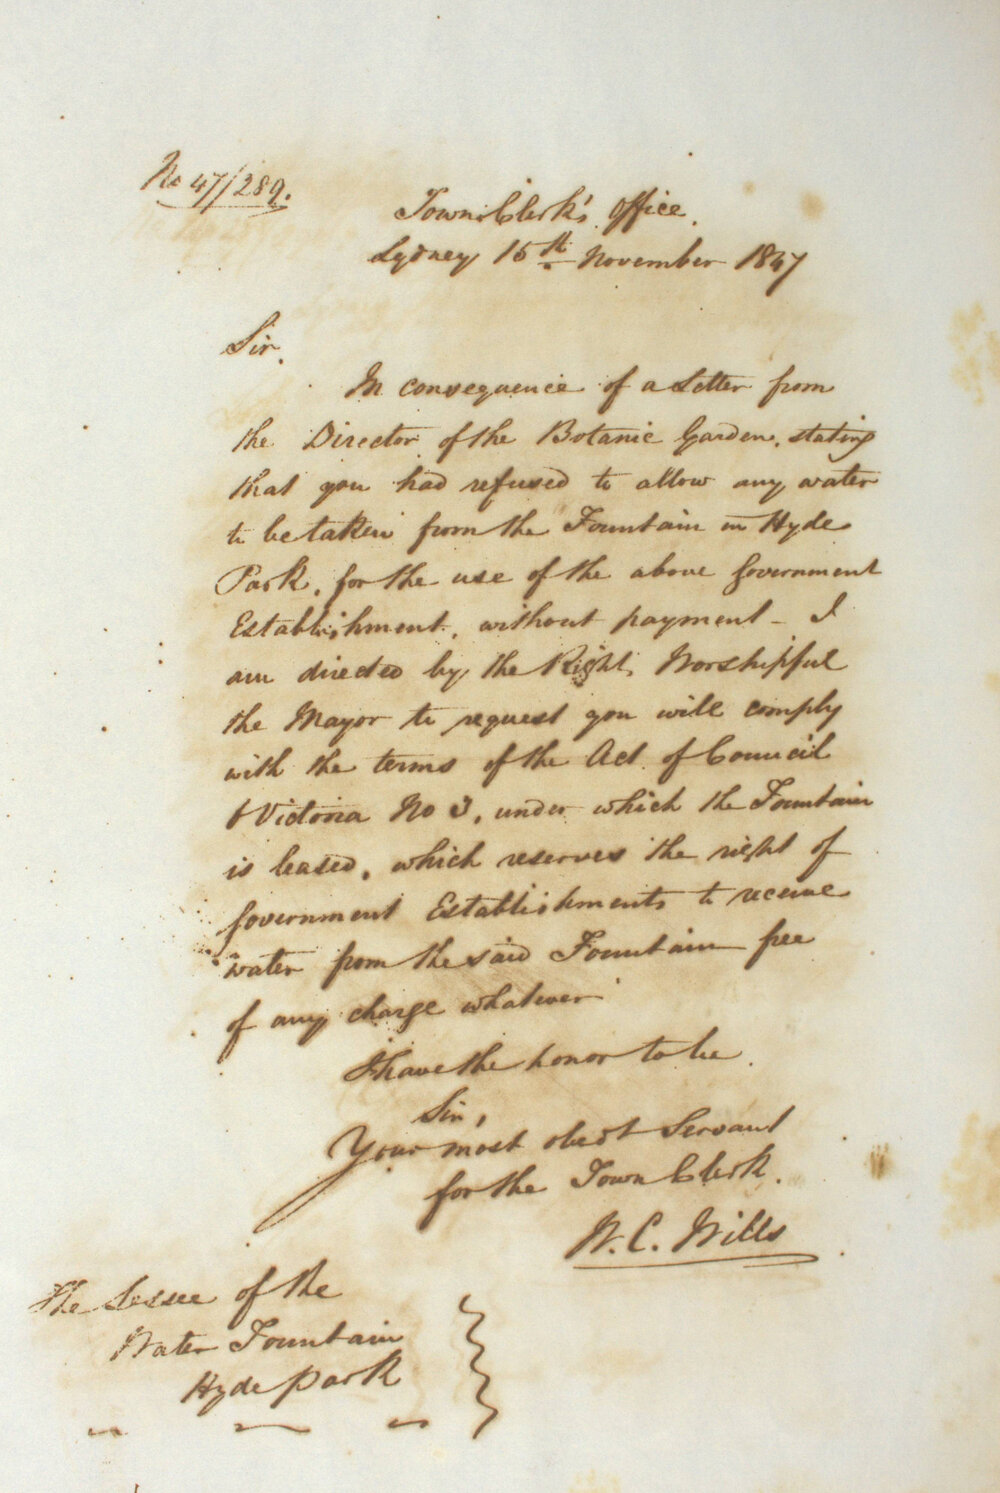 No 47/289.
Town Clerk's Office.
Sydney 15th November 1847
Sir.
In consequence of a Letter from
the Director of the Botanic Garden, stating
that you had refused to allow any water
to be taken from the Fountain in Hyde
Park, for the use of the above Government
Establishment, without payment - I
am directed by the Right Worshipful
the Mayor to request you will comply
with the terms of the Act of Council
Victoria No 3, under which the Fountain
is leased, which reserves the right of
Government Establishments to receive
water from the said Fountain free
of any charge whatever
I have the honor to be
Sir,
Your most obedt Servant
for the Town Clerk.
W. C. Wills
The Lessee of the
Water Fountain
Hyde Park